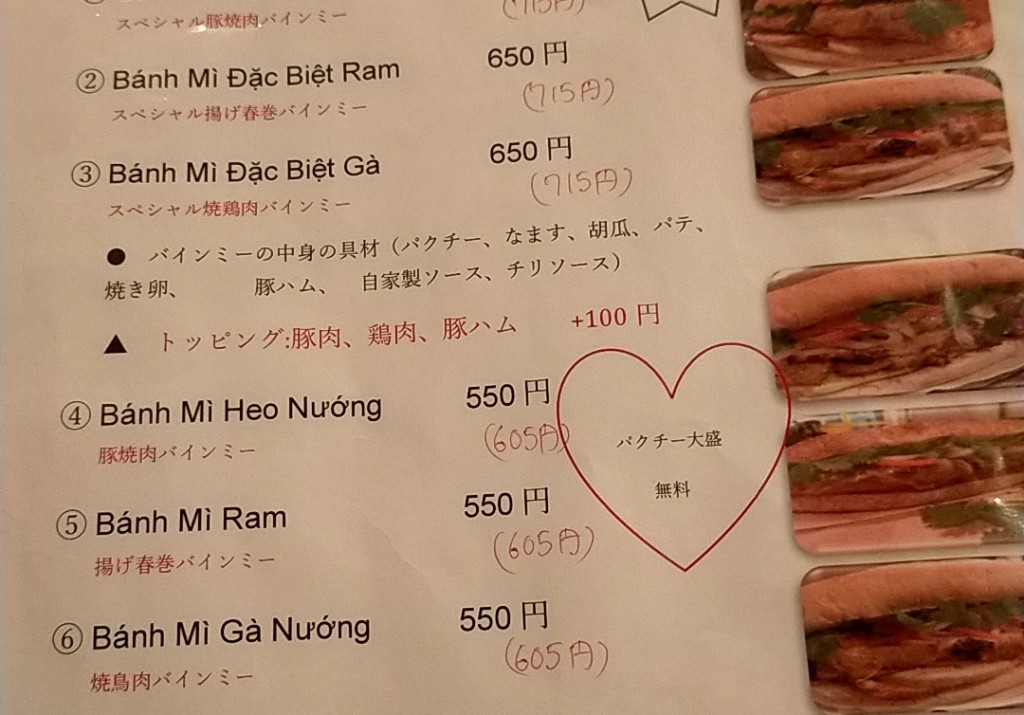 スペシャル豚焼肉バインミー
(715円)
② Bánh Mì Đặc Biệt Ram 650 円
スペシャル揚げ春巻バインミー (715円)
③ Bánh Mì Đặc Biệt Gà 650 円
スペシャル焼鶏肉バインミー (715円)
● バインミーの中身の具材（パクチー、なます、胡瓜、パテ、
焼き卵、 豚ハム、 自家製ソース、チリソース）
▲ トッピング:豚肉、鶏肉、豚ハム +100 円
④ Bánh Mì Heo Nướng 550 円
豚焼肉バインミー (605円)
パクチー大盛
無料
⑤ Bánh Mì Ram 550 円
揚げ春巻バインミー (605円)
⑥ Bánh Mì Gà Nướng 550 円
焼鳥肉バインミー (605円)